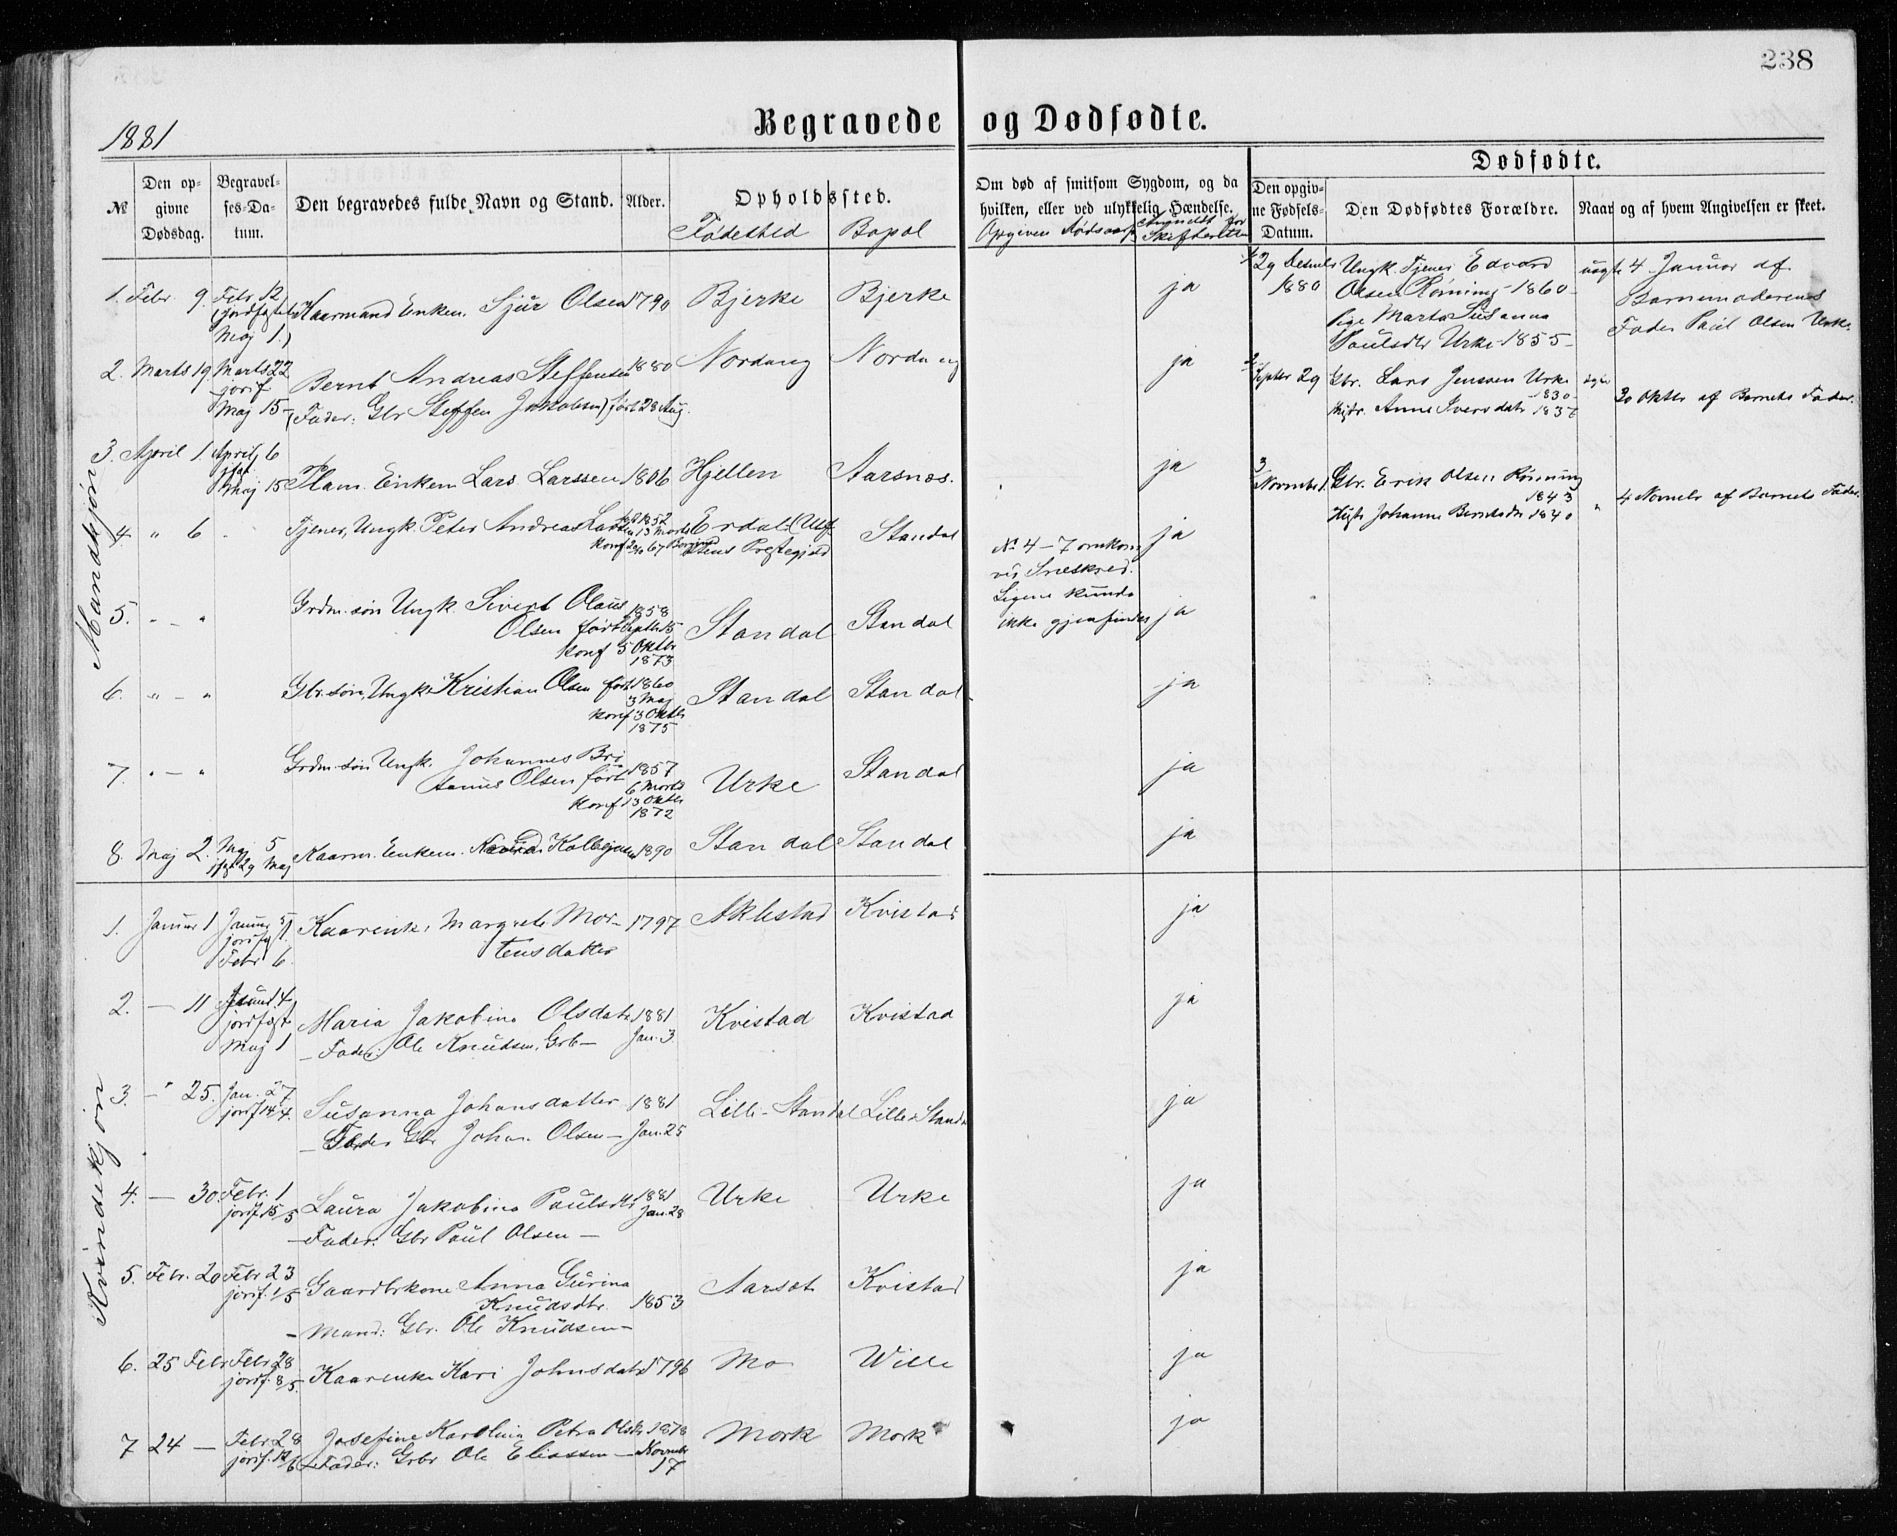 238
1881
Begravede og Dødfødte.
№
Den opgivne Dødsdag.
Begravelses-Datum.
Den begravedes fulde Navn og Stand.
Alder.
Opholdssted.
Fødested
Bopæl
Om død af smitsom Sygdom, og da hvilken, eller ved ulykkelig Hændelse.
Opgiven Dødsaarsag
Anmeldt for Skifteretten
Dødfødte.
Den opgivne Fødsels-Datum.
Den Dødfødtes Forældre.
Naar og af hvem Angivelsen er skeet.
Mandkjøn
1. Febr 9. Febr 12 jordfæstet Maj 1.) Kaarmand Enkem. Sjur Olsen 1790 Bjerke Bjerke ja
2. Marts 19. Marts 22 jorif Maj 15 Bernt Andreas Steffensen 1880 Nordang Nordang ja
(Fader: Gbr Steffen Jakobsen) født 28 Aug.
3. April 1. April 6 jfæt. Maj 15 Flam. Enkem Lars Larssen 1806 Hjellen Aarsnes. ja
4. " 6 Tjener, Ungk. Peter Andreas Larsen født 1852 13 Marts Erdal Standal ja
konf 67
Præstegjæld
№ 4 – 7 omkom
ved Sneskred.
Ligene kunde
ikke gjenfindes
5. " – " Grdm. søn Ungk Sivert Olaus
Olsen født 1858 Septbr 15 Standal Standal ja
konf 5 Oktbr 1873
6. " – " Gbr. søn, Ungk. Kristian Olsen født 1860 3 Maj Standal Standal ja
konf 3 Oktbr 1875
7. " – " Grdm. søn Ungk. Johannes Bri
tanus Olsen født 1857 6 Marts Urke Standal ja
konf 13 Oktbr 1872
8. Maj 2. Maj 5 jfæt 29 Maj Kaarm. Enkem. Kolbejnsen 1890 Standal Standal ja
Kvindekjøn
1. Januar 1 Januar 5 jordfæst. Febr 6. Kaarenke, Margrete Mor-
tensdatter 1797 Aklestad Kvistad ja
2. – 11 Januar 14 jordfæst Maj 1 Maria Jakobine Olsdatr 1881 Jan. 3 Kvistad Kvistad ja
– Fader: Ole Knudsen, Grb –
3. – " 25. Jan. 27 jordf 14/4. Susanna Johansdatter 1881 Jan. 25 Lille-Standal Lille-Standal ja
– Fader Gbr Johan Olsen –
4. – 30 Febr. 1 jordf. 15/5 Laura Jakobina Paulsdtr 1881 Jan. 28 Urke Urke ja
– Fader: Gbr Paul Olsen –
5. Febr. 20 Febr 23 jorif. 1/5 Gaardbrkone Anna Gurina
Knudsdtr. 1853 Aarsæt Kvistad ja
– Mand: Gbr. Ole Knudsen –
6. 25 Febr Febr 28 jordf. 8/5. Kaarenke Kari Johnsdatr 1796 Mo Wille ja
7 24 – Febr 28 jorif. 12/6 Josefine Karoline Petra Olsdtr 1878 Novmbr 17 Mork Mork ja
– Fader: Grbr Ole Eliassen –
1/ 29 Desmbr 1880 Ungk. Tjener Edvard
Olsen Rønning – 1860 –
Pige Marta Susanna
Paulsdtr Urke – 1855 –
uægte 4 Januar af
Barnemoderens
Fader Paul Olsen Urke.
2/ Septbr 29 Gbr. Lars Jensen Urke
1830 –
Hustr. Anne Iversdatr 1837
ægte 30 Oktbr af Barnets Fader.
3/ Novmbr 1. Gbr. Erik Olsen Rønning
1843
Hustr Johanne Berntsdtr 1840
" 4 Novmbr af Barnets Fader.